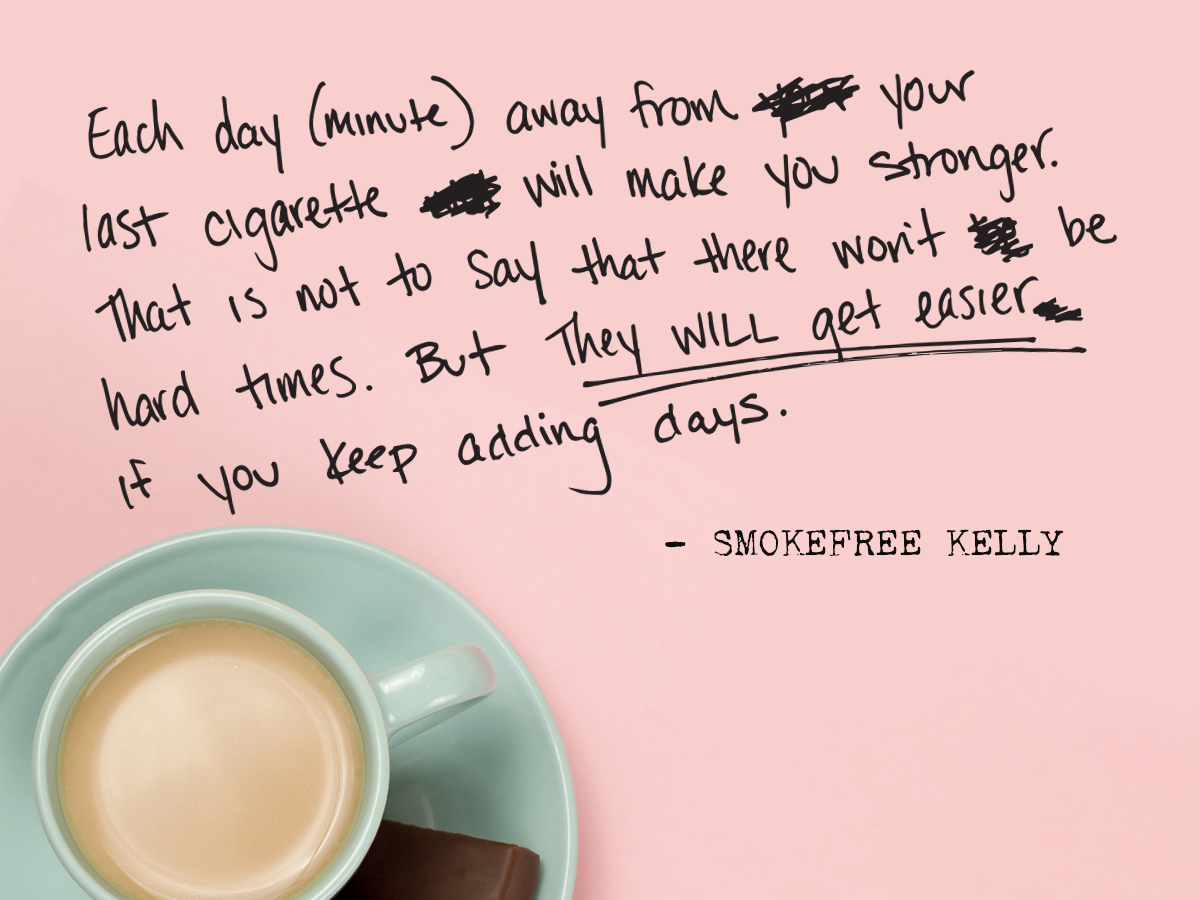 Each day (minute) away from your
last cigarette will make you stronger.
That is not to say that there won't be
hard times. But They WILL get easier
if you keep adding days.
- SMOKEFREE KELLY